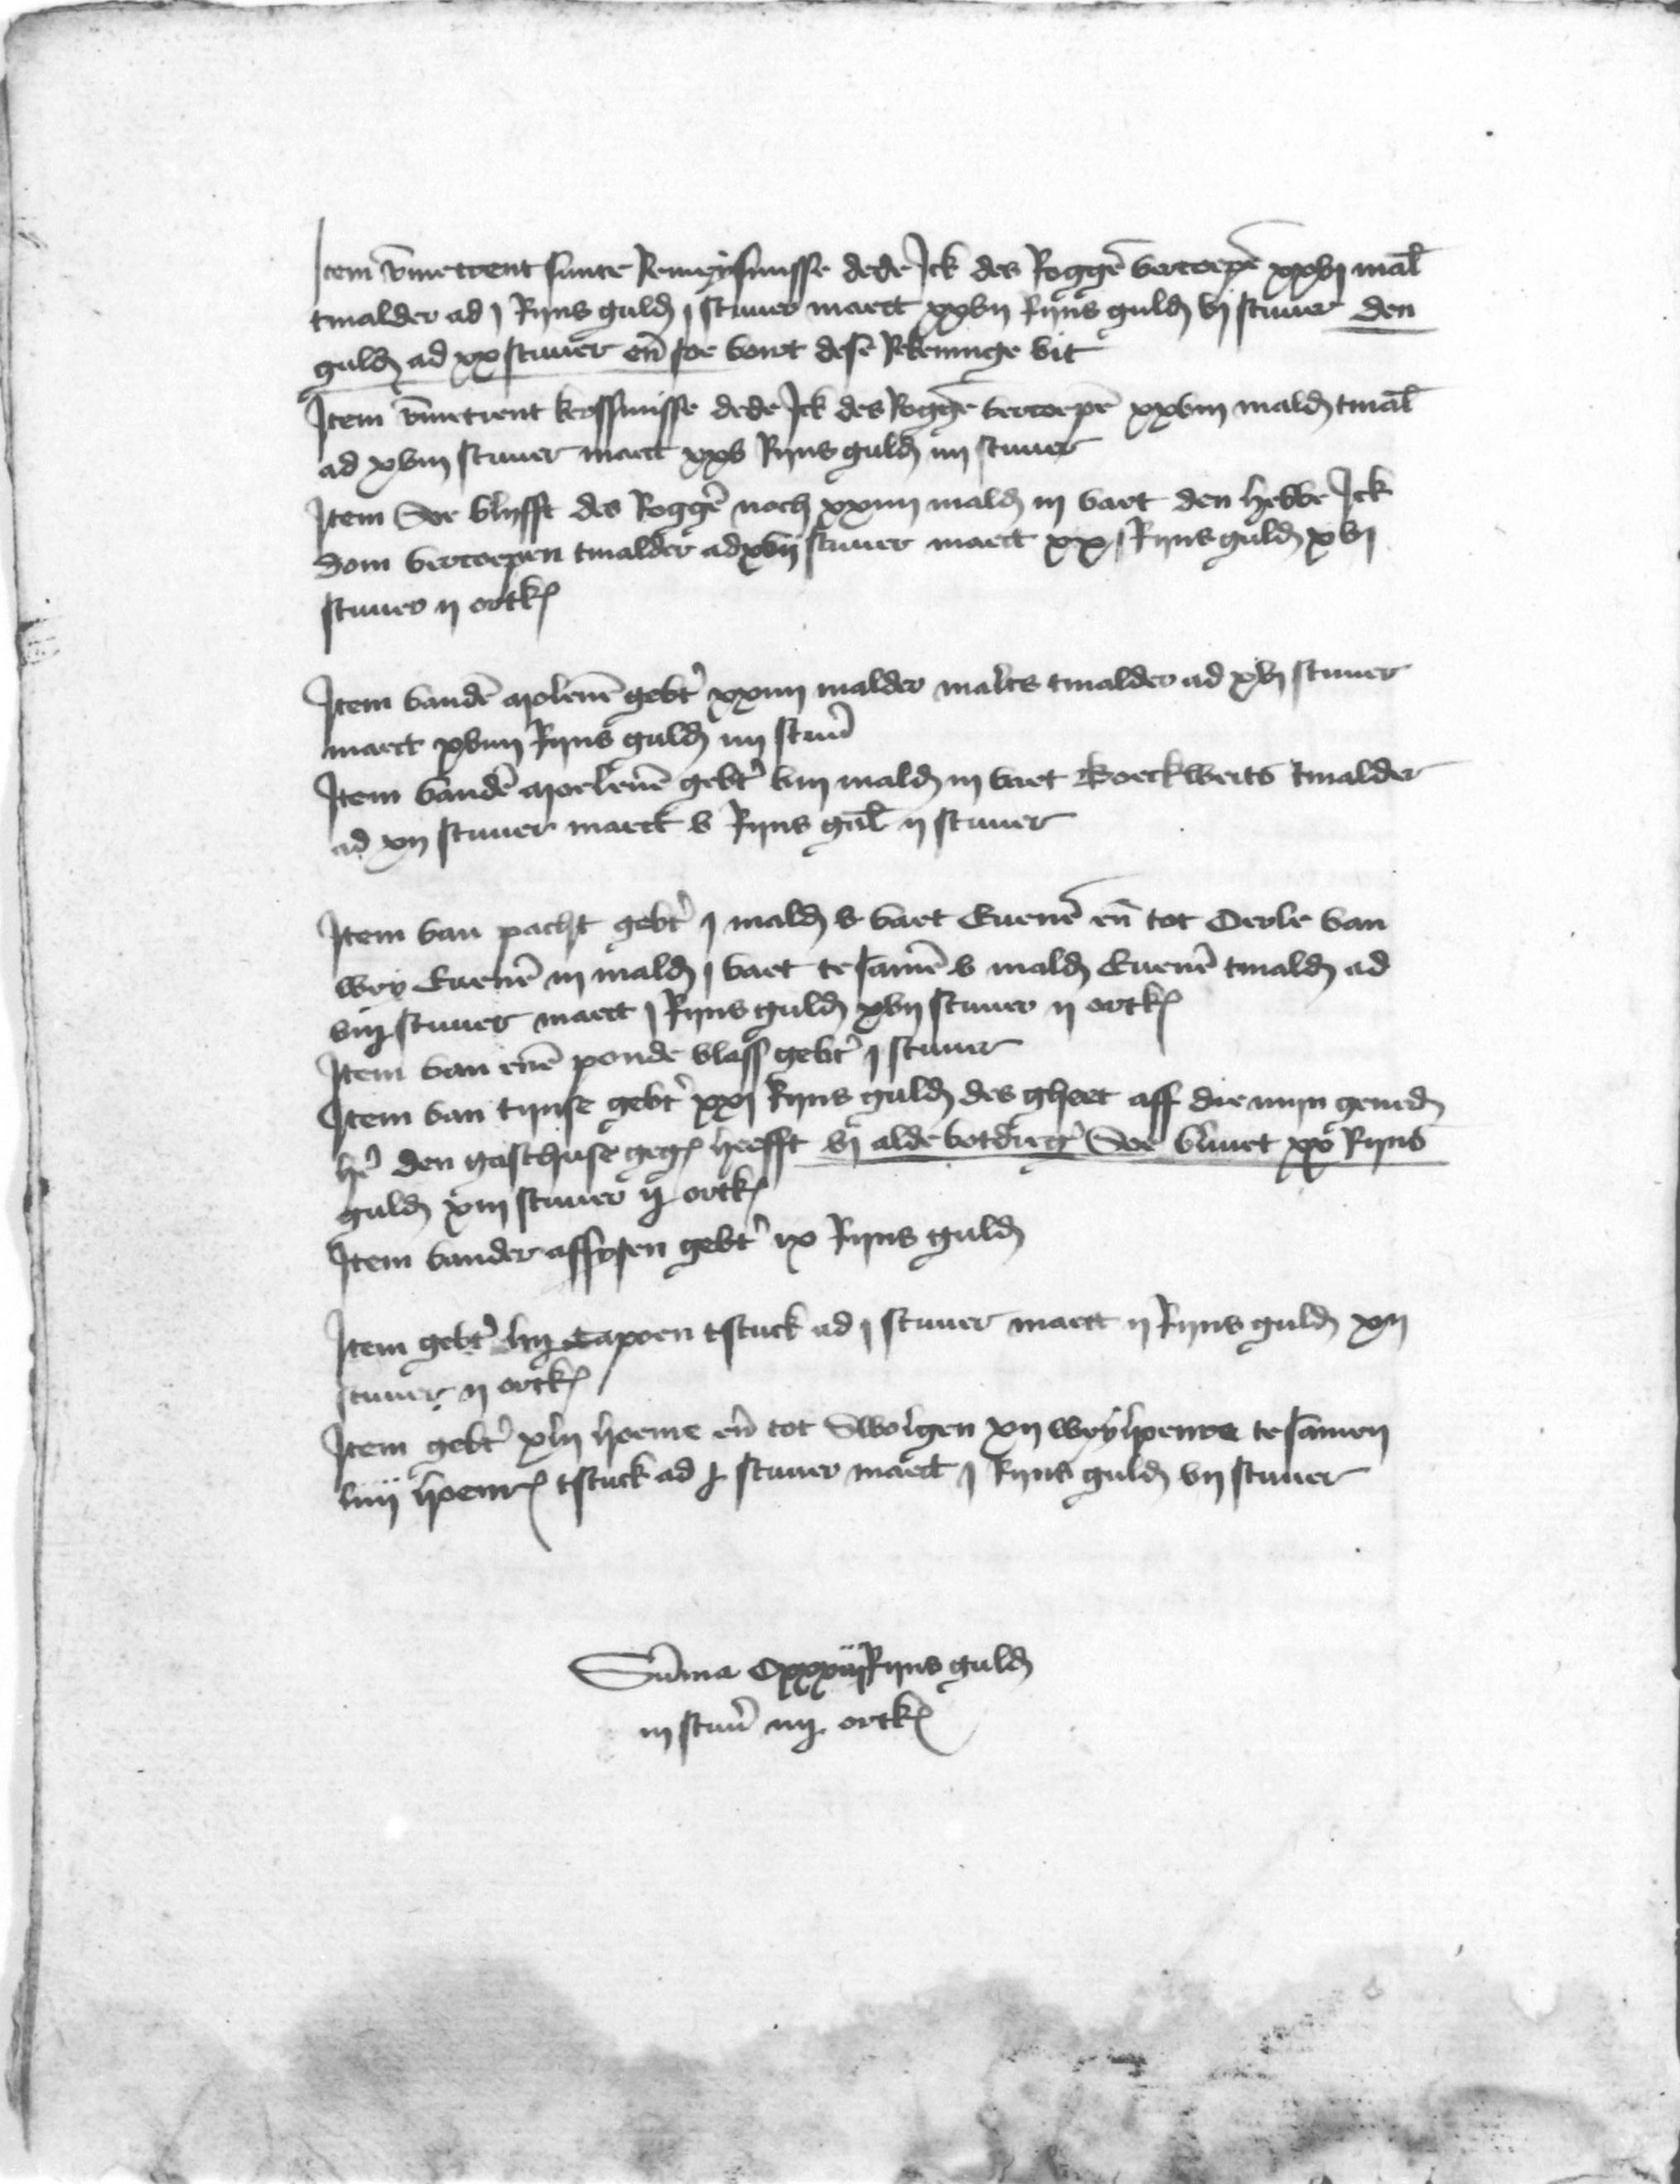 Item vmetrent sunte Remeysmisse dede Ick des Roggē vercoepē xxvj mal̄
tmalder ad j Rijns guld j stuuer maect xxvij Rijns guld vj stuuer den
guld ad xx stuuer eñ soe vort dese Rekeninge vit
Item vmetrent kerssmisse dede Ick des Roggē vercoepē xxviij mald tmal̄
ad xviij stuuer maect xxv Rijns guld iiij stuuer
Item Soe blijfft des Roggē noch xxiiij mald iij vaet den hebbe Ick
Som vercoepen tmalder ad xvij stuuer maect xx Rijns guld xvj
stuuer ij ortk
Item vandē molenē geb't xxiiij malder malts tmalder ad xvj stuuer
maect xviij Rijns guld iiij stuu'
Item vandē moelenē geb't viij mald iij vaet Boeckweits tmalder
ad xij stuuer maect v Rijns gul̄ ij stuuer
Item van pacht geb't j mald v vaet Euenē eñ tot Oerle van
wey Euenē iij mald j vaet te samē v mald Euenē tmald ad
viij stuuer maect j Rijns guld xvij stuuer ij ortk
Item van enē ponde vlass geb't j stuuer
Item van tijnse geb't xxj Rijns guld des gheet aff die mijn gened
he' den gasthuse geg heefft vj alde botdreg' Soe bliuet xx Rijns
guld xiij stuuer ij ortk
Item vander assysen geb't ix Rijns guld
Item geb't lij Capoen tstuck ad j stuuer maect ij Rijns guld xij
stuuer ij ortk
Item geb't xlij hoenre eñ tot Swolgen xij weyhoenre te samen
liiij hoenre tstuck ad stuuer maect j Rijns guld vij stuuer
Sūma Cxxxiij Rijns guld
iij stuu' iij ortk